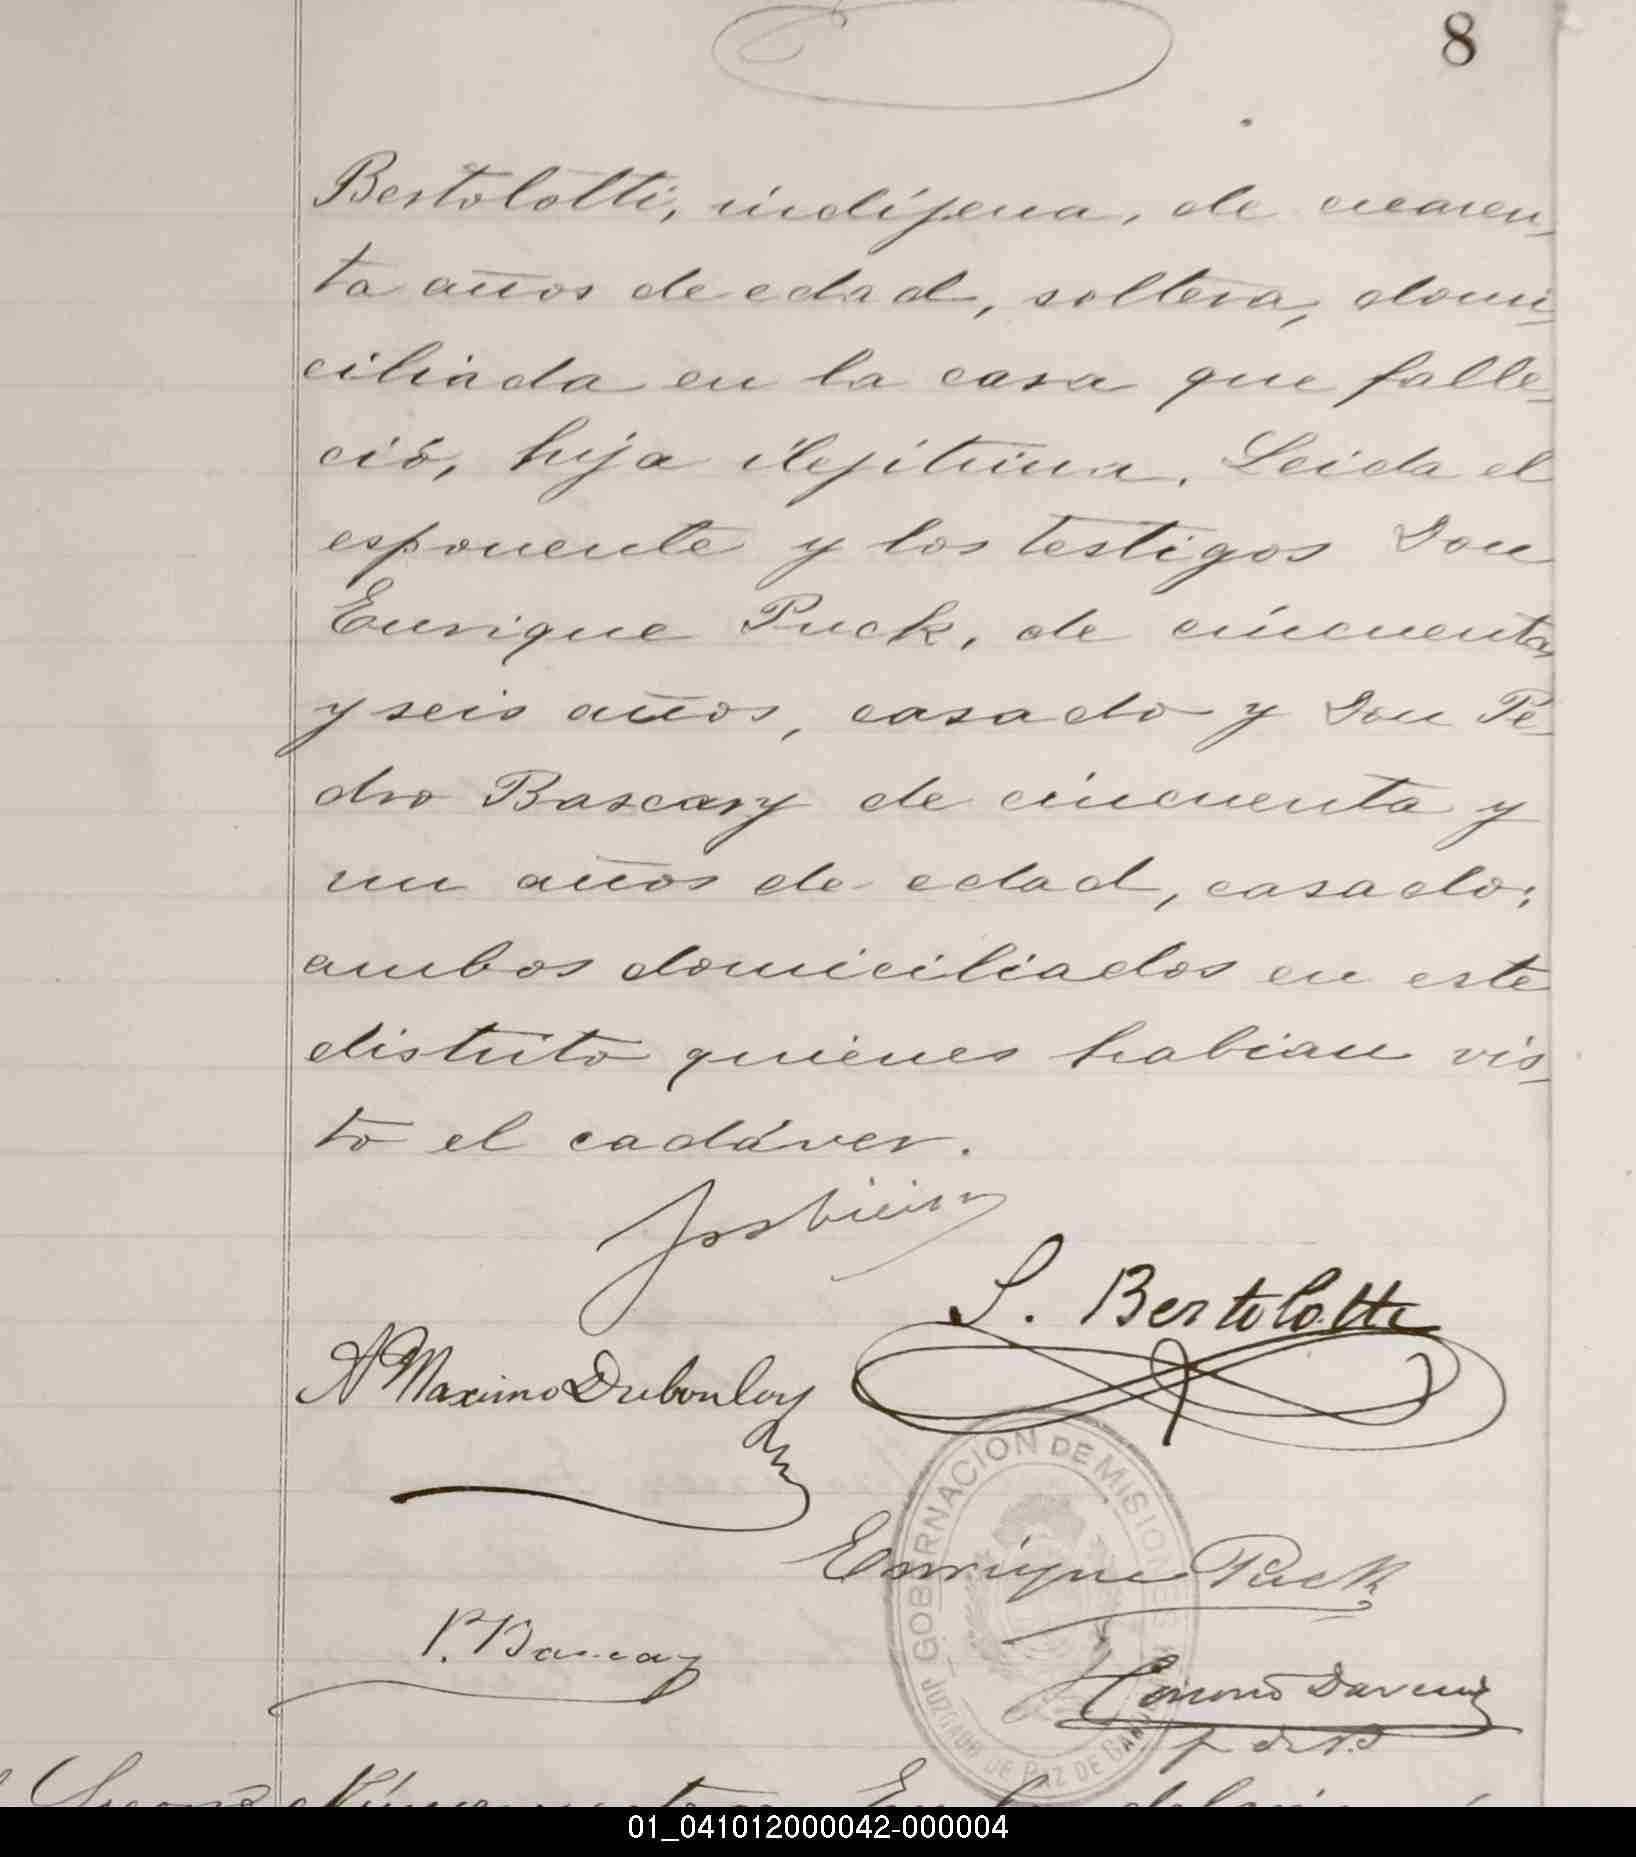 8
Bertolotti, indígena, de cuaren-
ta años de edad, soltera, domi-
ciliada en la casa que falle-
ció, hija ilejitima. Leida el
esponente y los testigos Don
Enrique Puck, de cincuenta
y seis años, casado y Don Pe-
dro Bascary de cincuenta y
un años de edad, casado;
ambos domiciliados en este
distrito quienes habian vis-
to el cadáver.
S. Bertolotti
A Maximo Dubouloy
GOBERNACION DE MISIONES
Enrique Puck
P. Bascary
JUZGADO DE PAZ DE CANDE
01_041012000042-000004